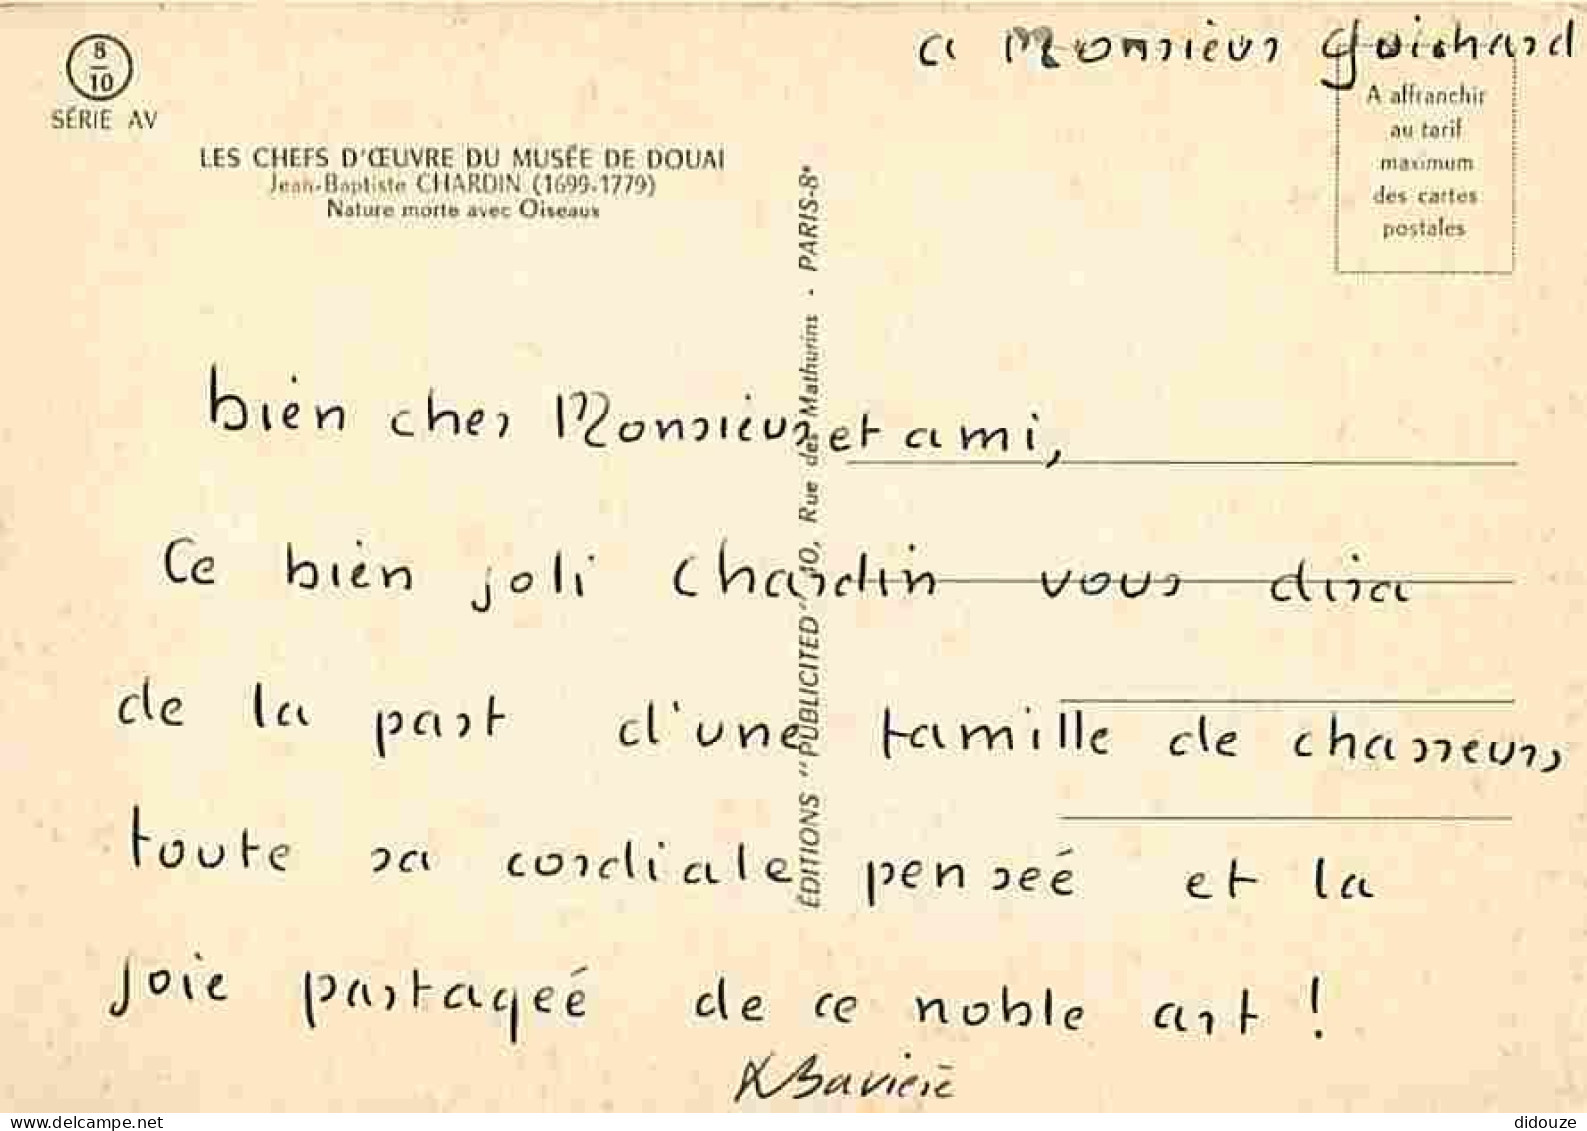 a Monsieur Guichard
8
10
SÉRIE AV
A affranchir
au tarif
maximum
des cartes
postales
LES CHEFS D'ŒUVRE DU MUSÉE DE DOUAI
Jean-Baptiste CHARDIN (1699-1779)
Nature morte avec Oiseaux
ÉDITIONS "PUBLICITED" 10, Rue des Mathurins - PARIS-8e
bien cher Monsieur et ami,
Ce bien joli Chardin vous dira
de la part d'une famille de chasseurs,
toute sa cordiale penseé et la
joie partageé de ce noble art !
Bavière
didouze